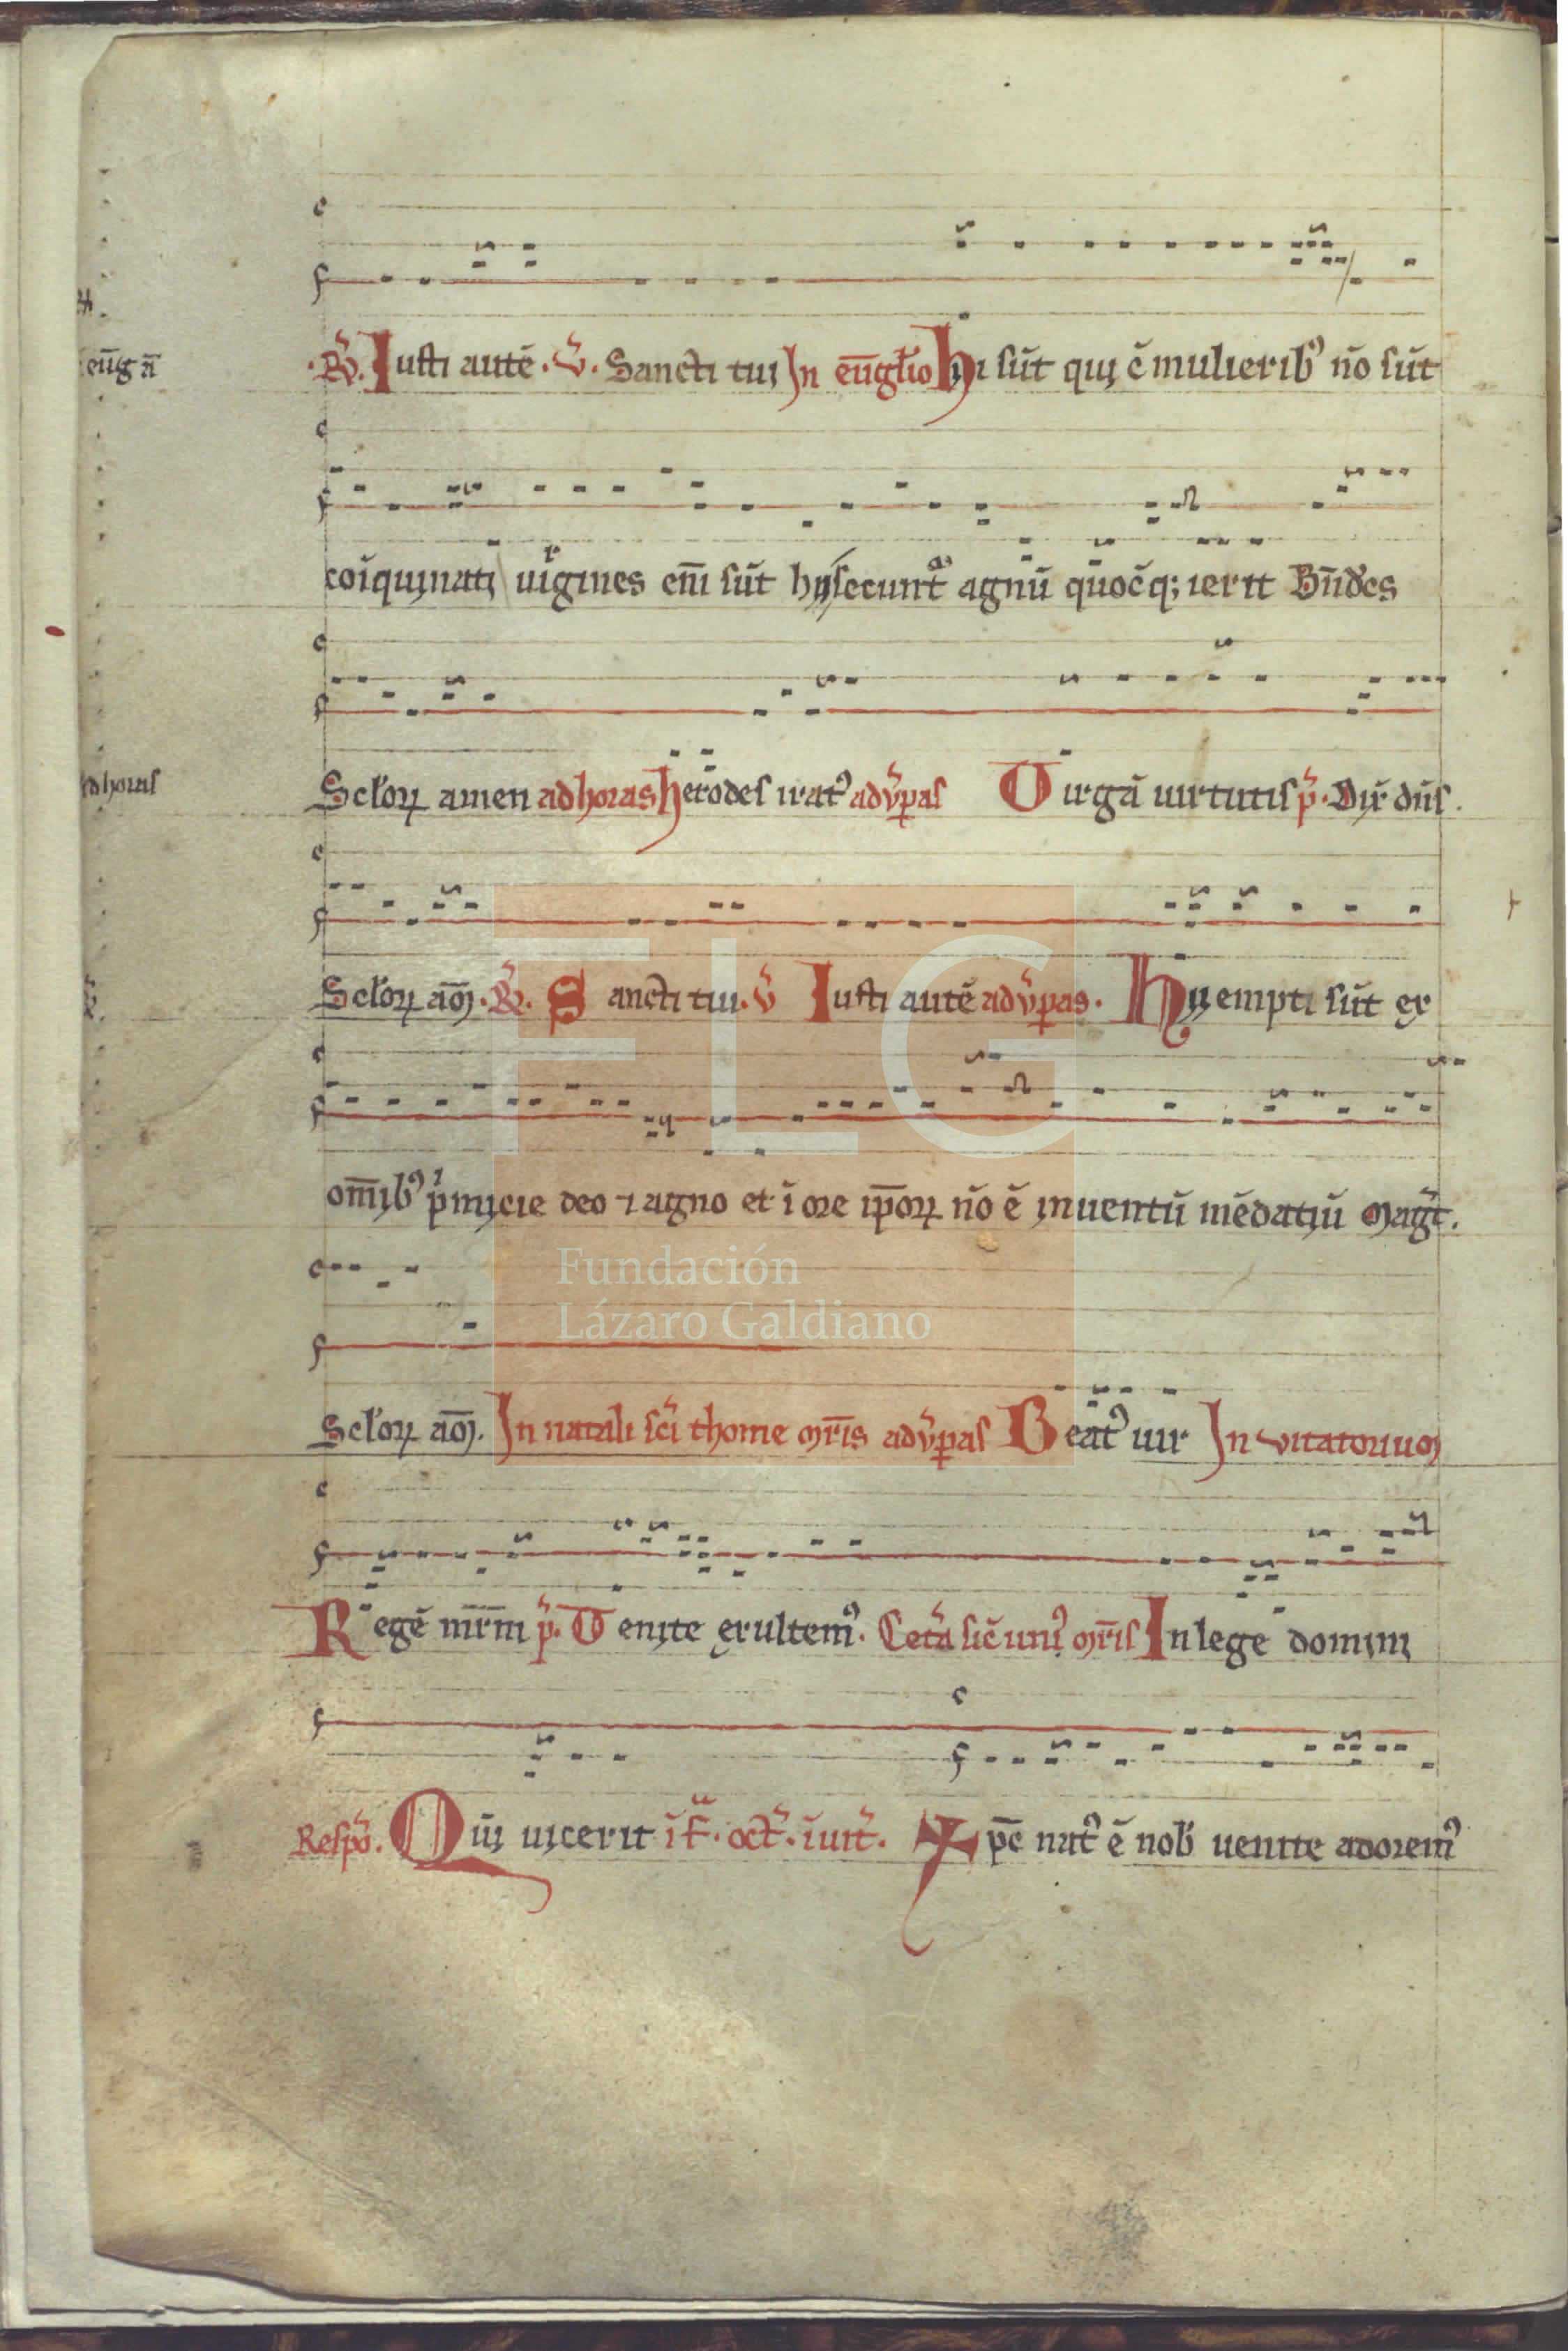 c
f
eūg ā
.R̃. Iusti autē. v̄. Sancti tui In eūgłio hi sūt qui c̄ mulierib⁹ nō sūt
c
f
coīquinati uirgines eni̅ sūt hij secuntᷣ agnū quocq; ierit Bn̄des
c
f
ad horas
Scl̓oꝝ amen ad horas herodes irat⁹ ad v̓ꝑas Virgā uirtutis p̓. Dix̓ dn̄s.
c
f
Scl̓oꝝ am̅. R̃. Sancti tui. v̓ Iusti autē ad v̓ꝑas. Hij empti sūt ex
c
f
om̅ib⁹ pⁱmicie deo ⁊ agno et ī ore ip̅oꝝ nō ē inuentū mēdatiū Magt̓.
c
f
Scl̓oꝝ am̅. In natali sc̓i thome mr̅is ad v̓ꝑas Beat⁹ uir Inuitatorium
c
f
Regē mr̅m p̓. Venite exultem⁹. Cet̓a sic̄ uni⁹ mr̅is In lege domini
f c
f
Respō. Qui uicerit īfᷓ. oct̓. īuit̓. Xp̅c nat⁹ ē nob̓ uenite adorem⁹
FLG
Fundación
Lázaro Galdiano